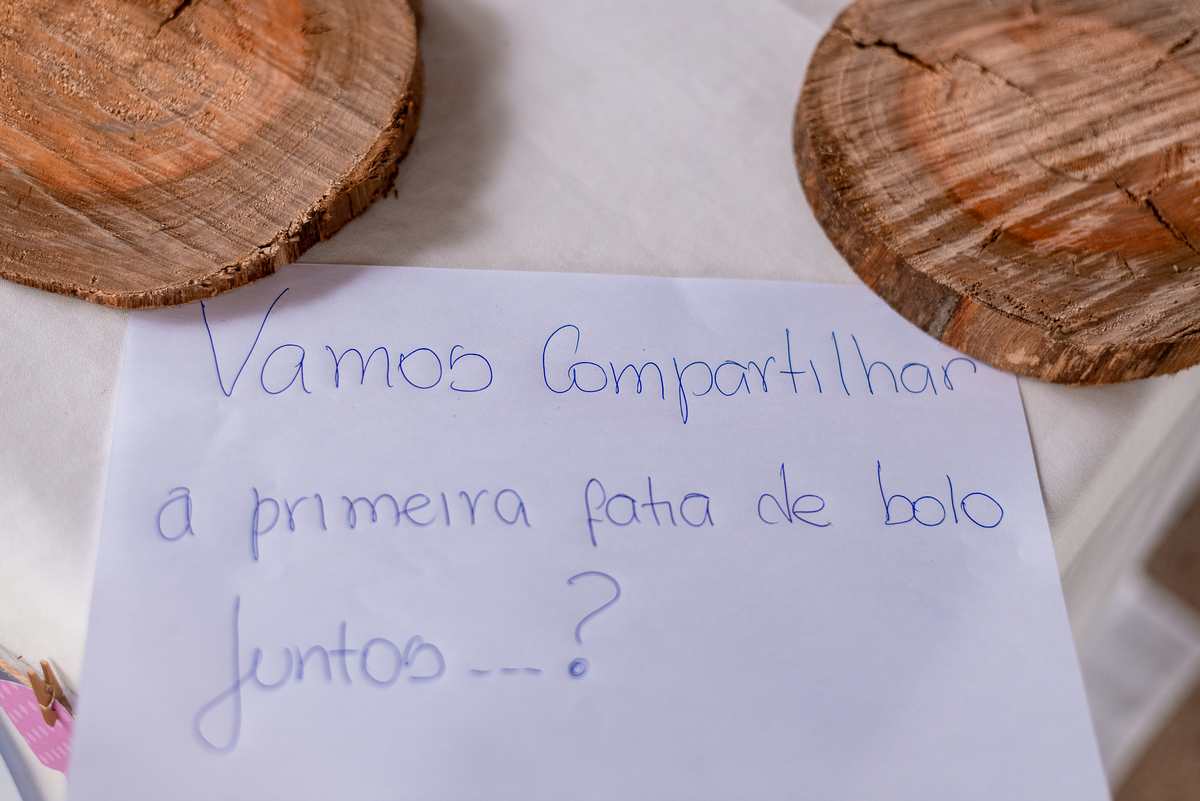 Vamos Compartilhar
a primeira fatia de bolo
Juntos ---?